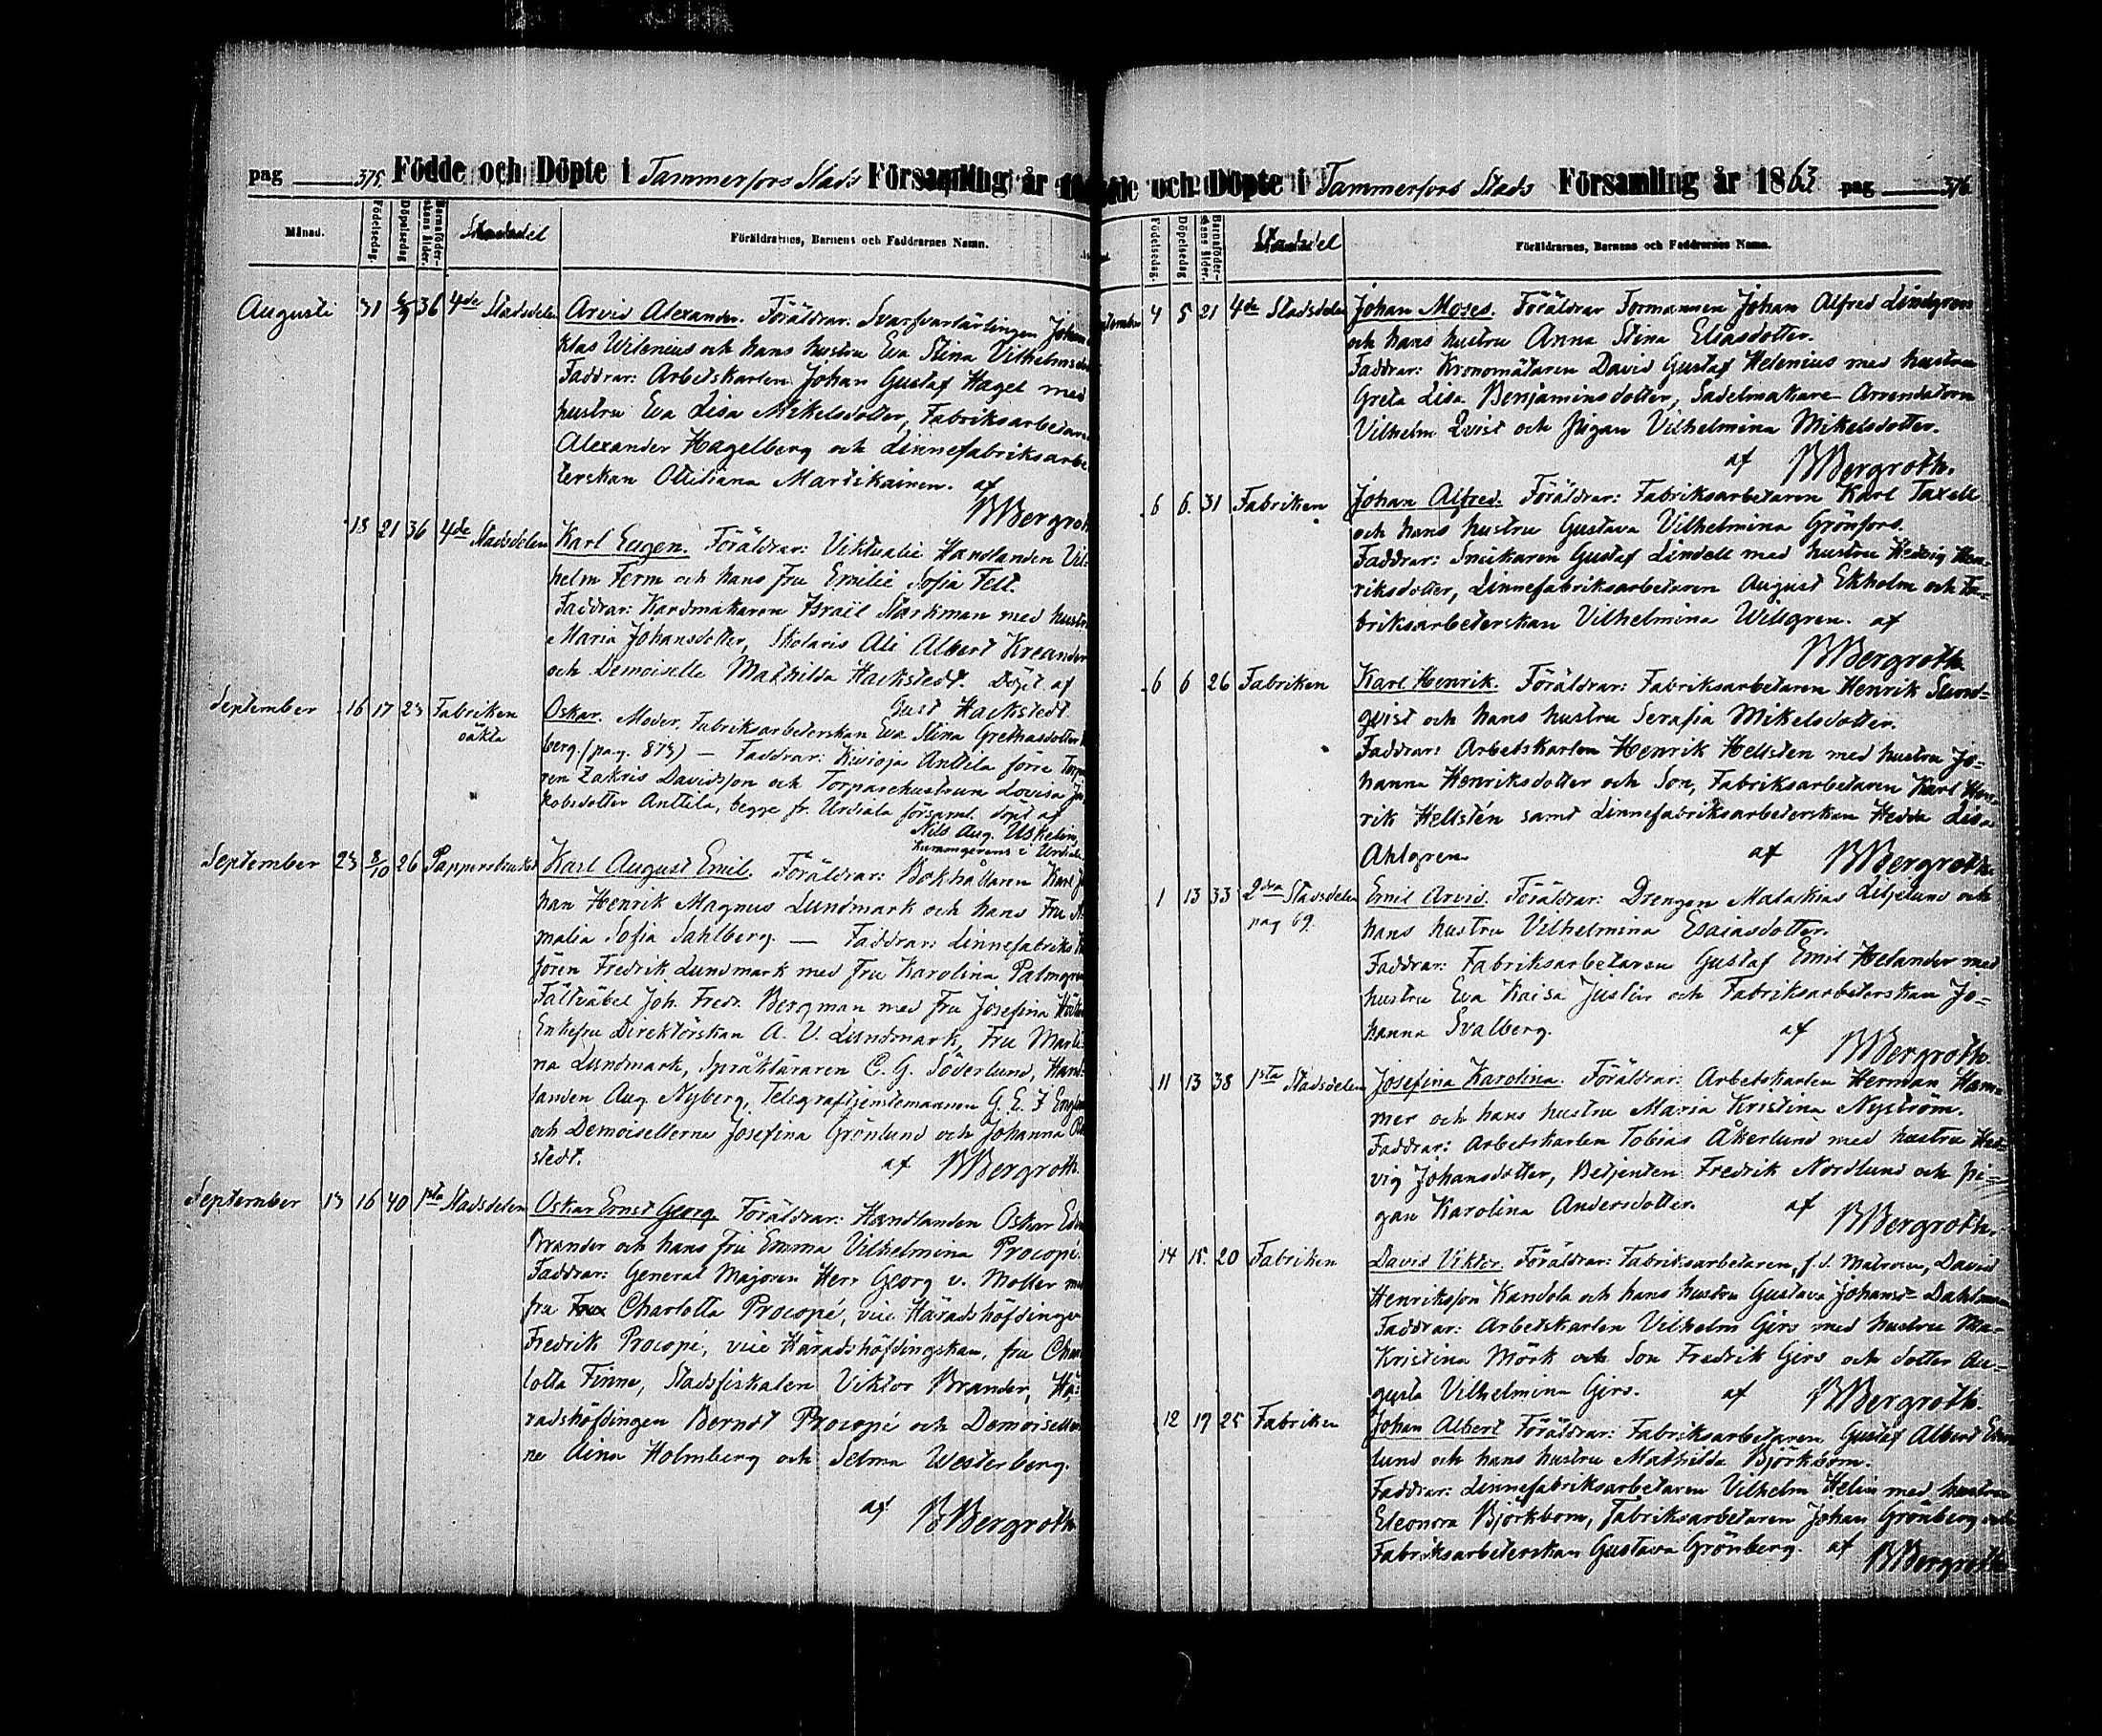 pag 375. Födde och Döpte i Tammerfors Stads Församling år
Månad. Födelsedag. Döpelsedag Barnaföderskans ålder. Stadsdel Föräldrarnes, Barnens och Faddrarnes Namn.
Augusti 31 6/9 36 4de Stadsdelen Arvid Alexander. Föräldrar: Svarfvarlärlingen Johan
Klas Wilenius och hans hustru Eva Stina Vilhelmsdr
Faddrar: Arbetskarlen Johan Gustaf Hagel med
hustru Eva Lisa Mikelsdotter, Fabriksarbetaren
Alexander Hagelberg och Linnefabriksarbe
terskan Ottiliana Martikainen. af
BBergroth
18 21 36 4de Stadsdelen Karl Eugen. Föräldrar: Viktualie Handlanden Vil-
helm Ferm och hans fru Emilie Sofia Felt.
Faddrar: Kardmakaren Israël Starkman med hustru
Maria Johansdotter, Skolaris Ali Albert Kreander
och Demoiselle Mathilda Hackstedt. Döpt af
Gust Hackstedt.
September 16 17 23 Fabriken Oskar. Moder. Fabriksarbeterskan Eva Stina Grethasdotter
oäkta berg. (pag. 873) — Faddrar: Kivioja Anttila förre Torpa
ren Zakris Davidsson och Torparehustrun Lovisa Ja
kobsdotter Anttila, begge fr. Urdiala församl. döpt af
Nils Aug. Uskelin,
i Urdiala
September 23 8/10 26 Pappersbruket Karl August Emil. Föräldrar: Bokhållaren Karl Jo
han Henrik Magnus Lundmark och hans Fru A
malia Sofia Sahlberg. — Faddrar: Linnefabriks
Fredrik Lundmark med Fru Karolina Palmgren
Fältväbel Joh. Fredr. Bergman med Fru Josefina
Enkefru Direktörskan A. V. Lundmark, Fru Marti
na Lundmark, Språkläraren C. G. Söderlund, Hand
landen Aug. Nyberg, Telegraftjenstemannen G. E. F
och Demoisellerna Josefina Grönlund och Johanna
stedt. af BBergroth.
September 13 16 40 1sta Stadsdelen Oskar Ernst Georg. Föräldrar: Handlanden Oskar
Brander och hans fru Emma Vilhelmina Procopé.
Faddrar: General Majoren Herr Georg v. Moller med
fru Charlotta Procopé, vice Häradshöfdingen
Fredrik Procopé, vice Häradshöfdingskan, fru Char
lotta Finne, Stadsfiskalen Viktor Brander, Hä-
radshöfdingen Berndt Procopé och Demoiseller
ne Aina Holmberg och Selma Westerberg.
af BBergroth
de och Döpte i Tammerfors Stads Församling år 1863 pag 376.
Födelsedag. Döpelsedag Barnaföderskans ålder. Stadsdel Föräldrarnes, Barnens och Faddrarnes Namn.
September 4 5 21 4de Stadsdelen Johan Moses. Föräldrar Formannen Johan Alfred Lindgren
och hans hustru Anna Stina Eliasdotter.
Faddrar: Kronomätaren David Gustaf Helenius med hustru
Greta Lisa Benjaminsdotter, Sadelmakare Arrendatorn
Vilhelm Qvist och Pigan Vilhelmina Mikelsdotter.
af BBergroth.
6 6. 31 Fabriken Johan Alfred. Föräldrar: Fabriksarbetaren Karl Taxell
och hans hustru Gustava Vilhelmina Grönfors.
Faddrar: Snickaren Gustaf Lindell med hustru Hedvig Hen-
riksdotter, Linnefabriksarbetaren August Ekholm och Fa-
briksarbeterskan Vilhelmina Willgren. af
BBergroth
6 6 26 Fabriken Karl Henrik. Föräldrar: Fabriksarbetaren Henrik Sund-
qvist och hans hustru Serafia Mikelsdotter.
Faddrar: Arbetskarlen Henrik Hellsten med hustru Jo-
hanna Henriksdotter och Son, Fabriksarbetaren Karl Hen-
rik Hellstén samt Linnefabriksarbeterskan Hedda Lisa
Ahlgren. af BBergroth.
1 13 33 2dra Stadsdelen Emil Arvid. Föräldrar: Drengen Malakias Liljelund och
pag 69. hans hustru Vilhelmina Esaiasdotter.
Faddrar: Fabriksarbetaren Gustaf Emil Helander med
hustru Eva Kaisa Justin och Fabriksarbeterskan Jo-
hanna Svalberg. af
BBergroth.
11 13 38 1sta Stadsdelen Josefina Karolina. Föräldrar: Arbetskarlen Herman Ham-
mer och hans hustru Maria Kristina Nyström.
Faddrar: Arbetskarlen Tobias Åkerlund med hustru Hed-
vig Johansdotter, Betjenten Fredrik Nordlund och Pi-
gan Karolina Andersdotter. af
BBergroth.
14 15. 20 Fabriken David Viktor. Föräldrar: Fabriksarbetaren, f. d. Matrosen, David
Henriksson Kandola och hans hustru Gustava Johansd. Dahlman
Faddrar: Arbetskarlen Vilhelm Girs med hustru Ma-
Kristina Mörk och Son Fredrik Girs och dotter Au-
gusta Vilhelmina Girs. af BBergroth.
12 19 25 Fabriken Johan Albert Föräldrar: Fabriksarbetaren Gustaf Albert
lund och hans hustru Mathilda Björkbom.
Faddrar: Linnefabriksarbetaren Vilhelm Helin med hustru
Eleonora Björkbom, Fabriksarbetaren Johan Grönberg och
Fabriksarbeterskan Gustava Grönberg. af BBergroth